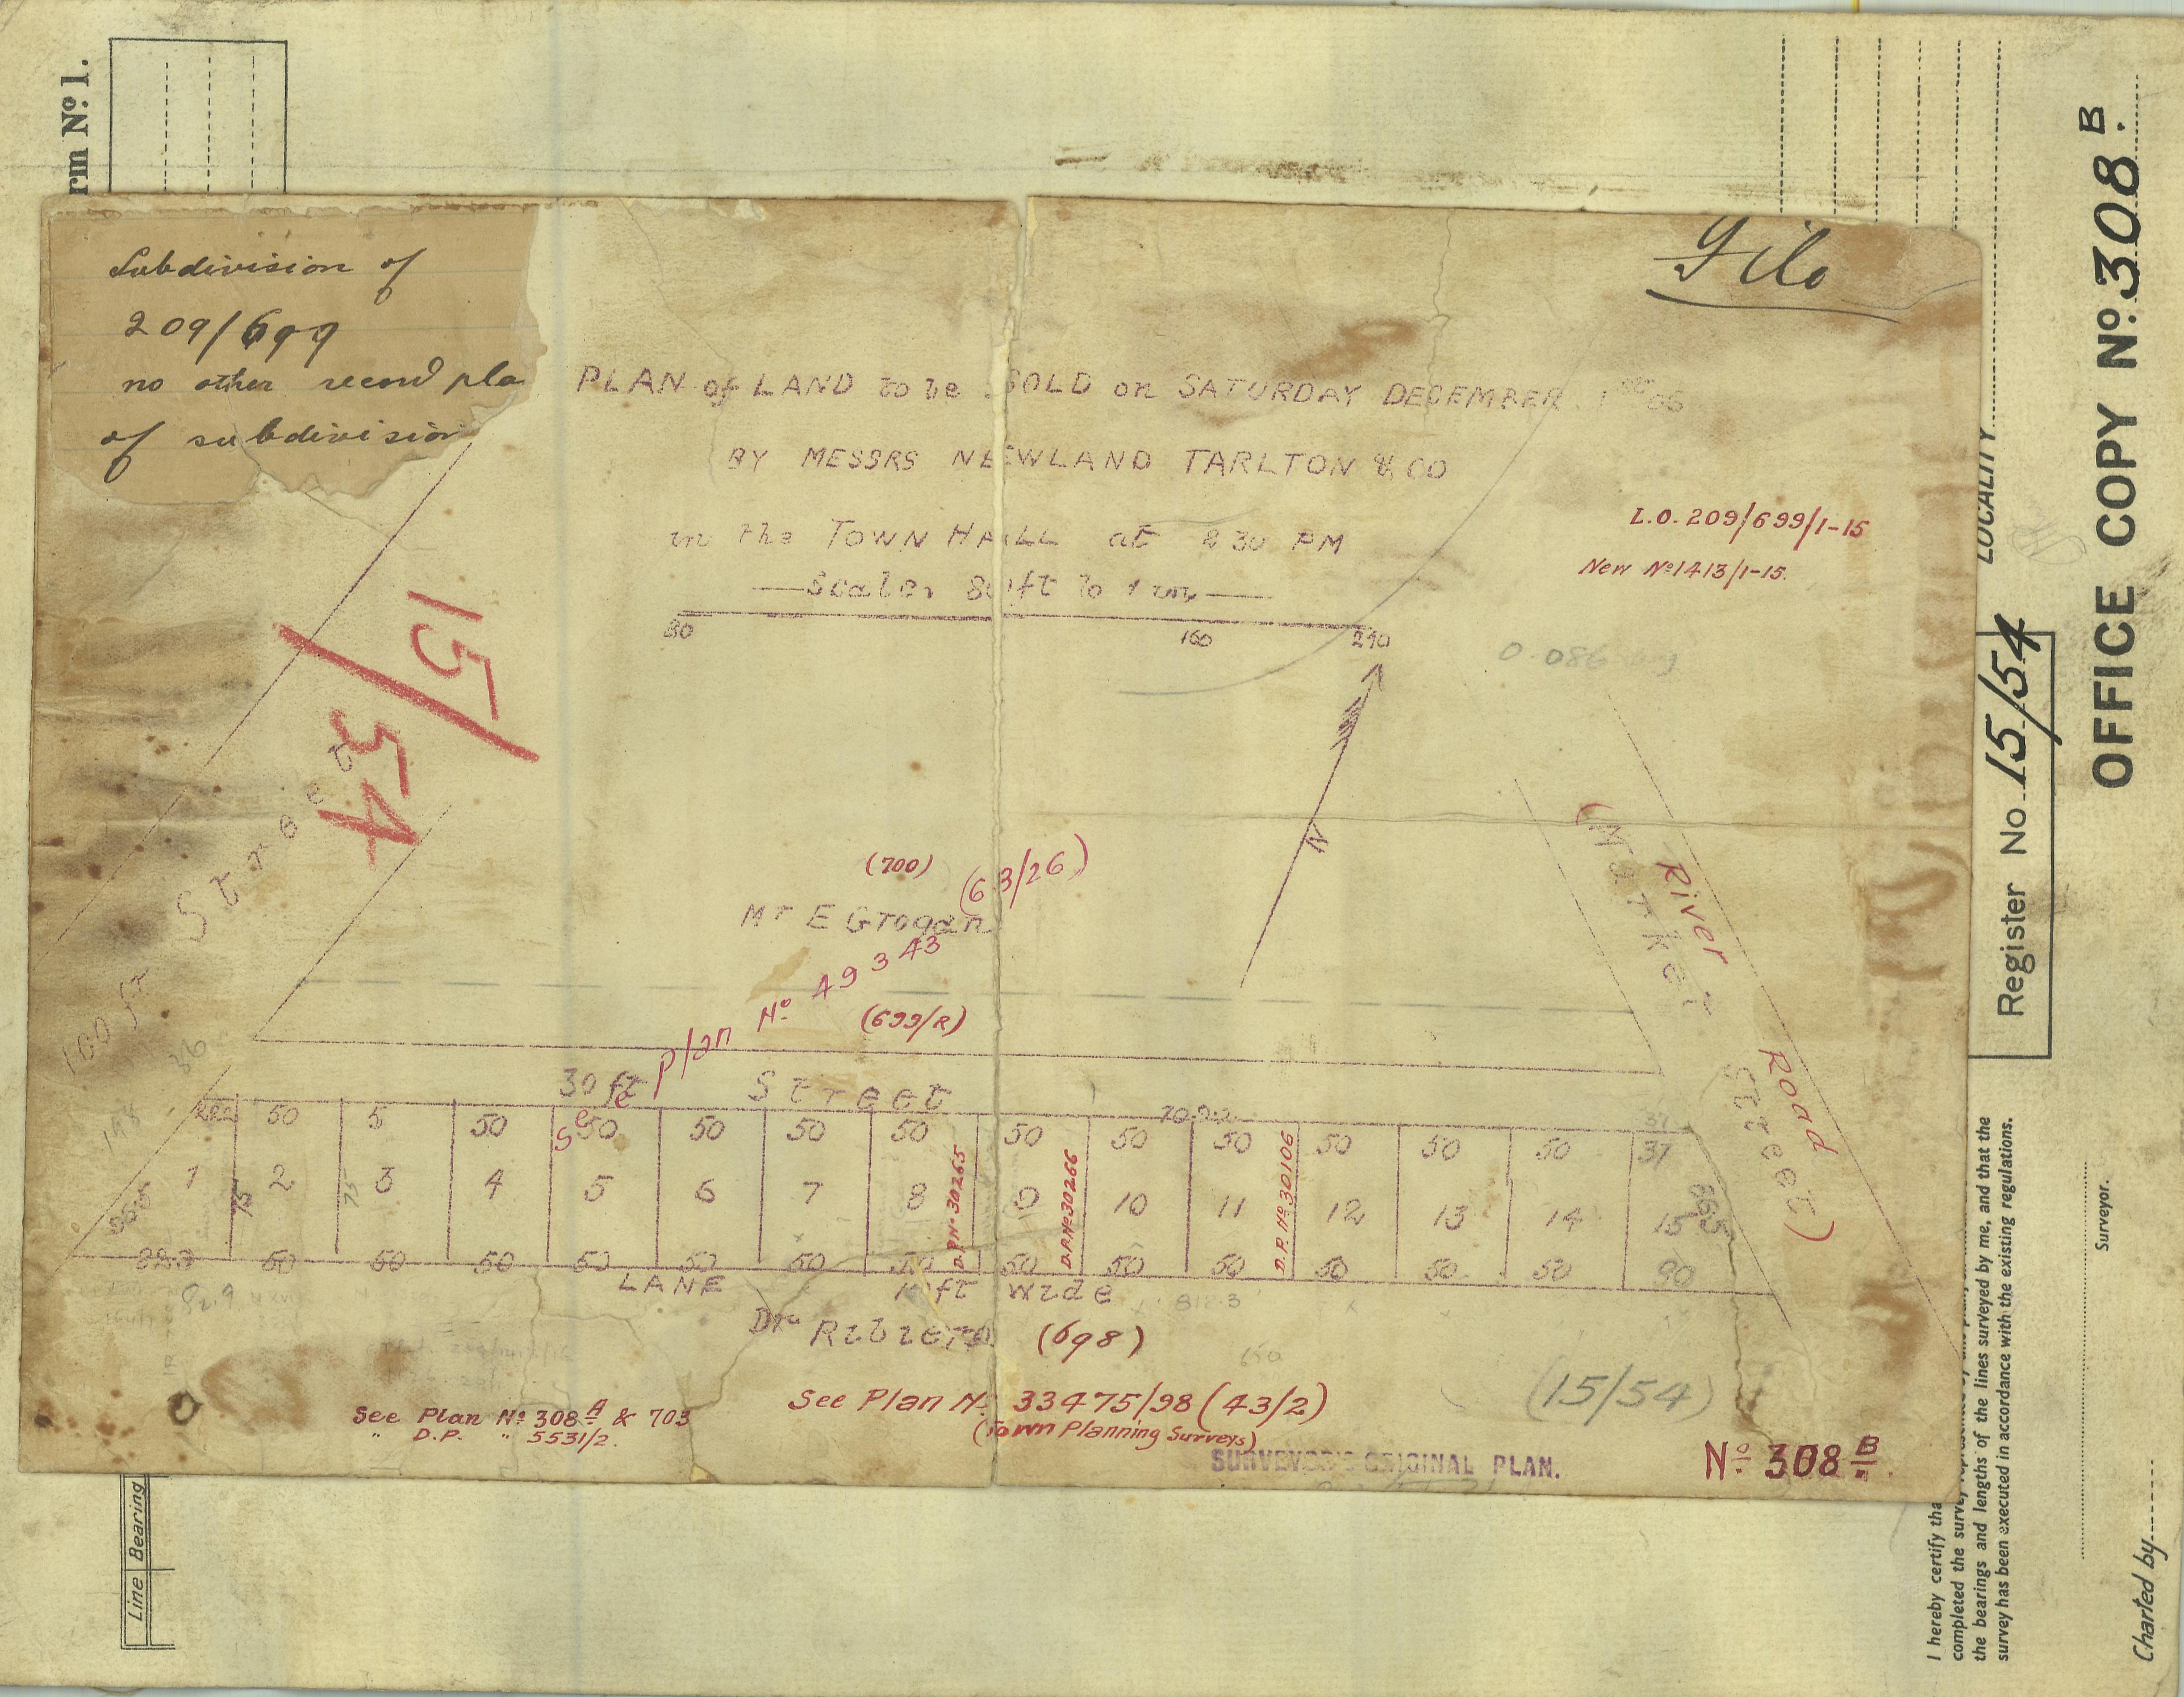 rm No. 1.
Subdivision of
209/699
no other record pla
of subdivision
File
PLAN of LAND to be SOLD on SATURDAY DECEMBER 1st 06
BY MESSRS NEWLAND TARLTON & CO
in the TOWN HALL at 8 30 PM
Scale, 80 ft to 1 in
80 160 240
L.O. 209/699/1-15
New No 1413/1-15.
0.086
15/54
N
Street
100 ft
(700)
(63/26)
Mr E Grogan
See plan No 49343
(699/R)
(Market Street)
River Road
30 ft Street
50 5 50 50 50 50 50 50 50 50 50 50 50 37
70.22
37
1 2 3 4 5 6 7 8 9 10 11 12 13 14 15
75 75
D.P. No 30265
D.P. No 30266
D.P. No 30106
50 50 50 50 50 50 50 50 50 50 50 50 50 90
82.9
LANE ft wide
812.3
Dr Ribiero (698)
650
See Plan No 308 A & 703
" D.P. " 5531/2.
See Plan No 33475/98 (43/2)
(Town Planning Surveys)
(15/54)
SURVEYOR'S ORIGINAL PLAN.
No 308 B.
Line Bearing
LOCALITY
Register No. 15/54
OFFICE COPY No. 308 B.
I hereby certify tha
completed the survey
the bearings and lengths of the lines surveyed by me, and that the
survey has been executed in accordance with the existing regulations.
Surveyor.
Charted by